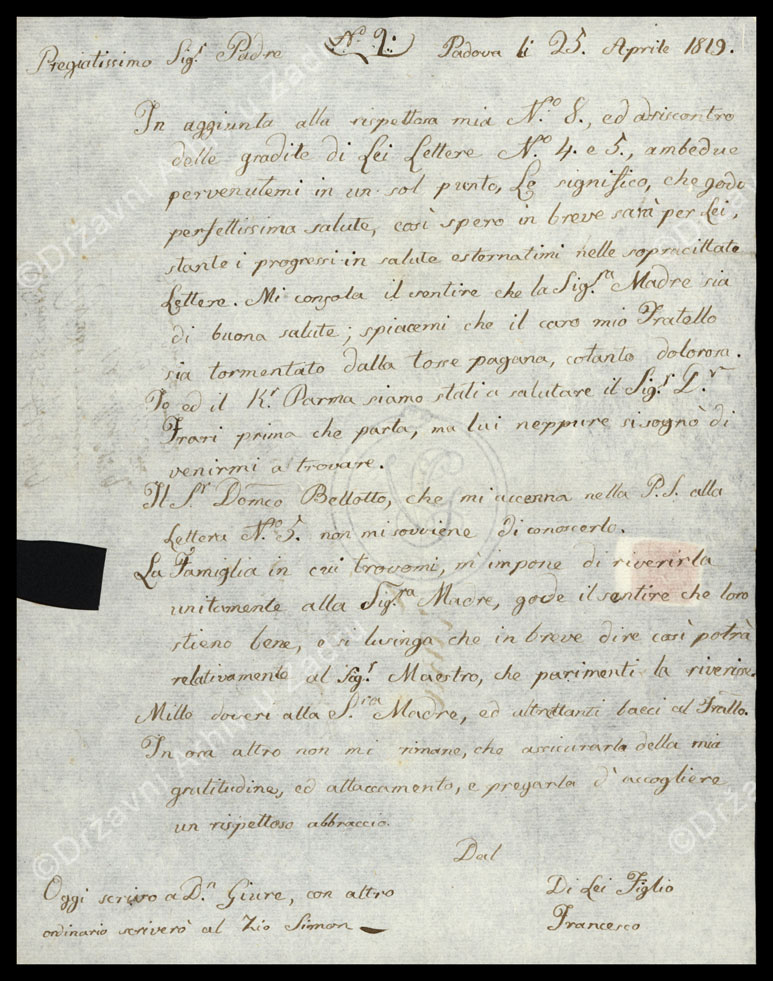 Pregiatissimo Sig.r Padre N.o 9: Padova li 25. Aprile 1819.
In aggiunta alla rispettosa mia N.o 8., ed a riscontro
delle gradite di Lei Lettere N.o 4. e 5., ambedue
pervenutemi in un sol punto, Le significo, che godo
perfettissima salute, così spero in breve sarà per Lei,
stante i progressi in salute esternatimi nelle sopracittate
Lettere. Mi consola il sentire che la Sig.ra Madre sia
di buona salute; spiacemi che il caro mio Fratello
sia tormentato dalla tosse pagana, cotanto dolorosa.
Io ed il K.r Parma siamo stati a salutare il Sig.r G.r
Frari prima che parta, ma lui neppure si sognò di
venirmi a trovare.
Il S.r Domco Bellotto, che mi accenna nella P.S. alla
Lettera N.o 5. non mi sovviene di conoscerlo.
La Famiglia in cui trovomi, m'impone di riverirla
unitamente alla Sig.ra Madre, gode il sentire che loro
stieno bene, e si lusinga che in breve dire così potrà
relativamente al Sig.r Maestro, che parimenti la riverisce.
Mille doveri alla S.ra Madre, ed altrettanti bacci al Frallo.
In ora altro non mi rimane, che assicurarla della mia
gratitudine, ed attaccamento, e pregarla d'accogliere
un rispettoso abbraccio.
Dal
Oggi scrivo a D.n Giure, con altro Di Lei Figlio
ordinario scriverò al Zio Simon Francesco
©Državni Arhiv u Zadru